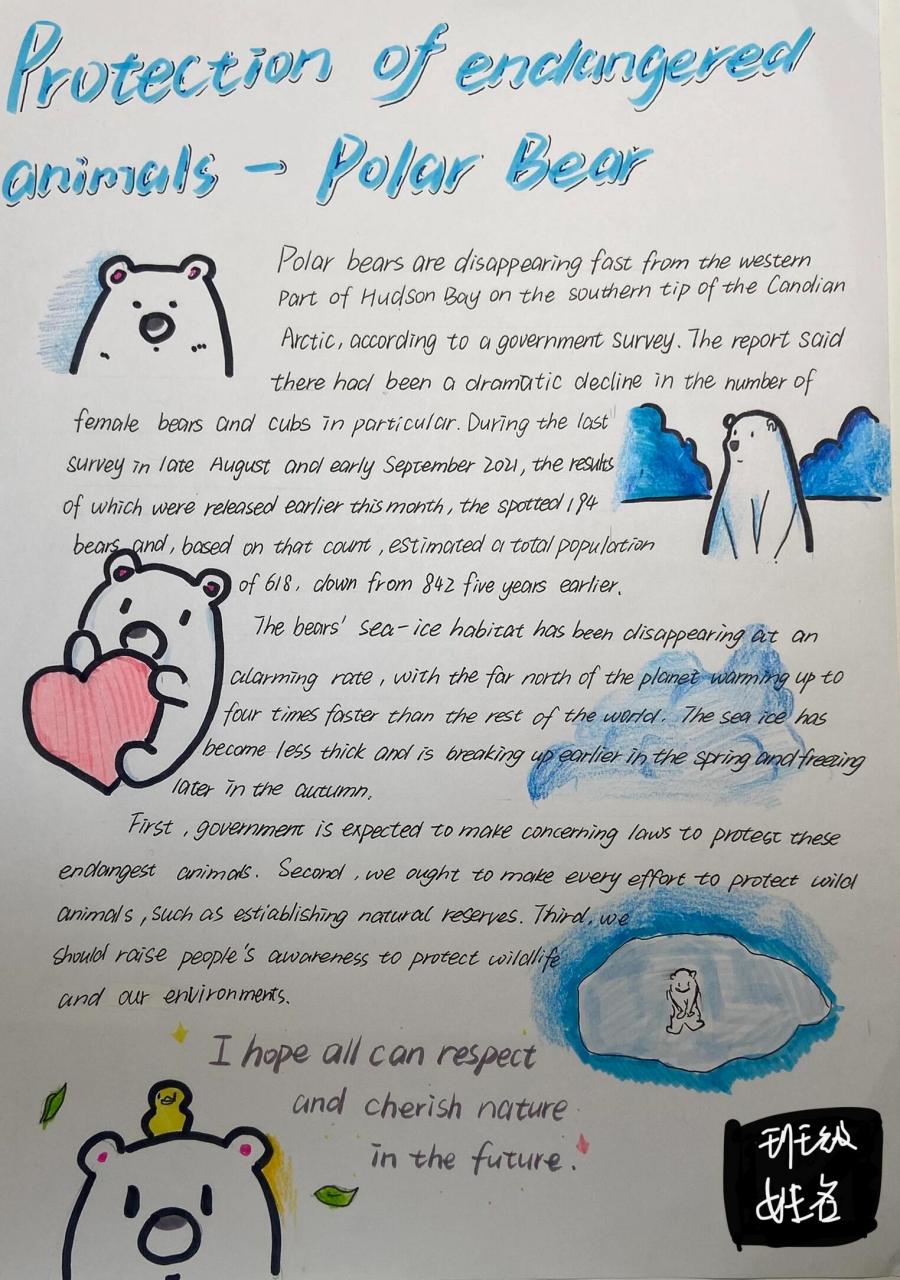 Protection of endangered
animals - Polar Bear
Polar bears are disappearing fast from the western
part of Hudson Bay on the southern tip of the Candian
Arctic, according to a government survey. The report said
there had been a dramatic decline in the number of
female bears and cubs in particular. During the last
survey in late August and early September 2021, the results
of which were released earlier this month, the spotted 194
bears and, based on that count, estimated a total population
of 618, down from 842 five years earlier.
The bears' sea-ice habitat has been disappearing at an
alarming rate, with the far north of the planet warming up to
four times faster than the rest of the world. The sea ice has
become less thick and is breaking up earlier in the spring and freezing
later in the autumn.
First, government is expected to make concerning laws to protest these
endangest animals. Second, we ought to make every effort to protect wild
animals, such as estiablishing natural reserves. Third, we
should raise people's awareness to protect wildlife
and our environments.
I hope all can respect
and cherish nature
in the future.
班级
姓名